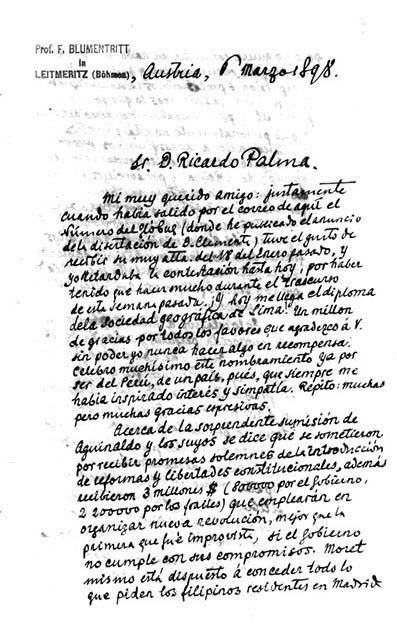 Prof. F. BLUMENTRITT
in
LEITMERITZ (Böhmen), Austria, 6 Marzo 1898.
Sr. D. Ricardo Palma.
Mi muy querido amigo: justamente
cuando había salido por el correo de aquí el
Número del Globus (donde he publicado el anuncio
de la disertación de D. Clemente) tuve el gusto de
recibir su muy atta. del 18 del Enero pasado, y
yo retardaba la contestación hasta hoy, por haber
tenido que hacer mucho durante el trascurso
de esta semana pasada. ¡Y hoy me llega el diploma
de la Sociedad geográfica de Lima! Un millon
de gracias por todos los favores que agradezco á V.
sin poder yo nunca hacer algo en recompensa.
Celebro muchísimo este nombramiento ya por
ser del Perú, de un país, pues, que siempre me
había inspirado interés y simpatía. Repito: muchas
pero muchas gracias espresivas.
Acerca de la sorpendente sumisión de
Aguinaldo y los suyos se dice que se sometieron
por recibir promesas solemnes de la introducción
de reformas y libertades constitucionales, además
recibieron 3 millones $ (800000 por el Gobierno,
2 200000 por los frailes) que emplearán en
organizar nueva revolución, mejor que la
primera que fué improvista, si el Gobierno
no cumple con sus compromisos. Moret
mismo está dispuesto á conceder todo lo
que piden los filipinos residentes en Madrid